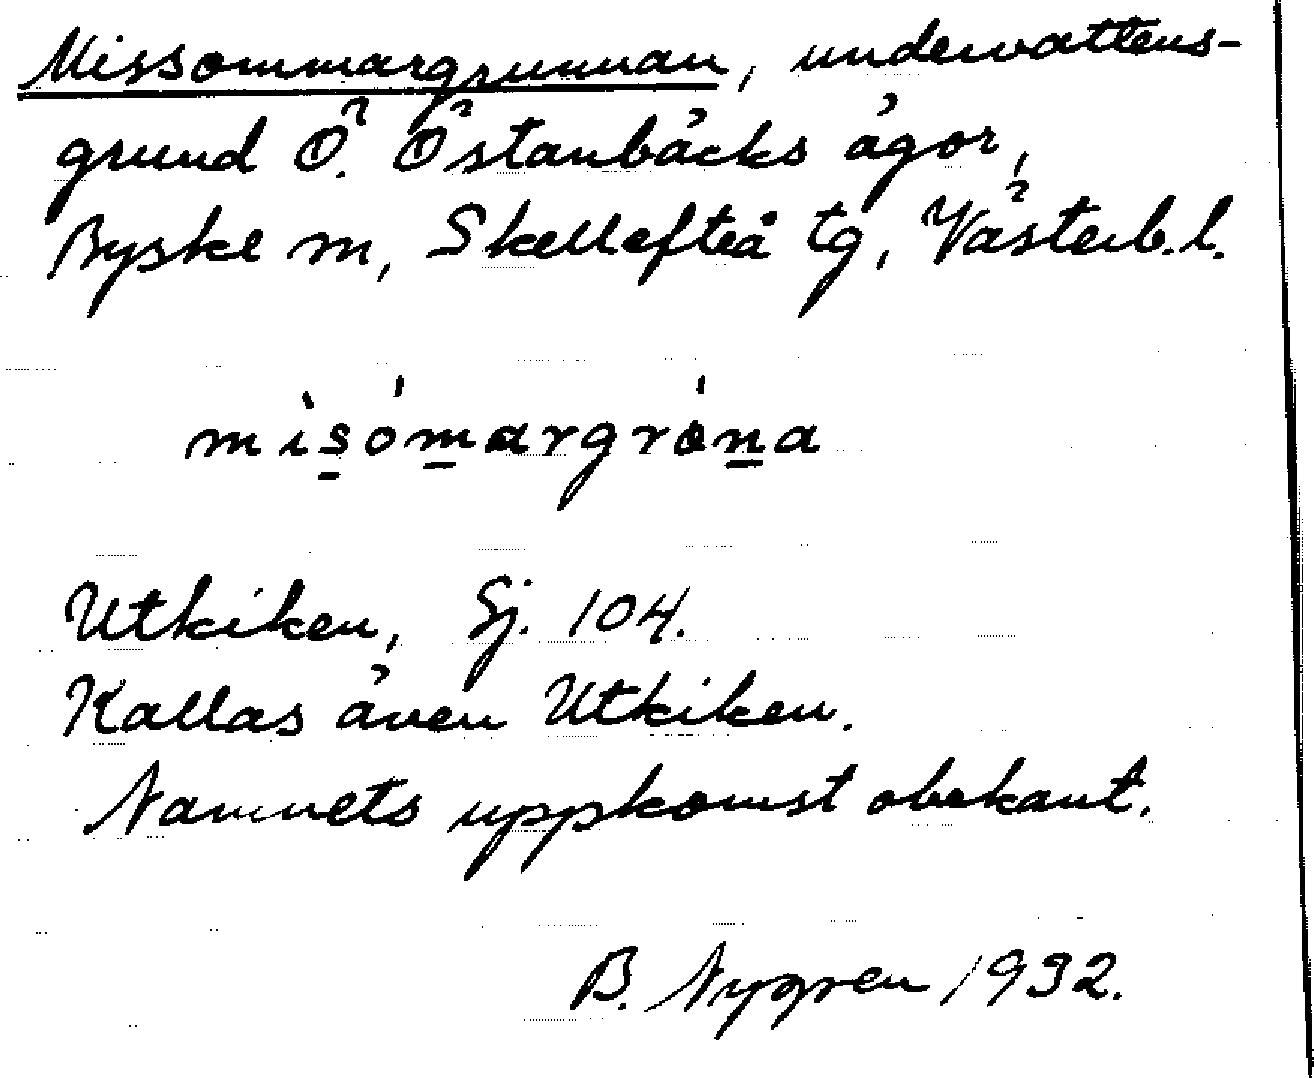 Missommargrunnan, undervattens-
grund Ö. Östanbäcks ägor,
Byske m, Skellefteå tg, Västerb. l.
misomargrona
Utkiken, Sj. 104.
Kallas även Utkiken.
Namnets uppkomst obekant.
B. Nygren 1932.